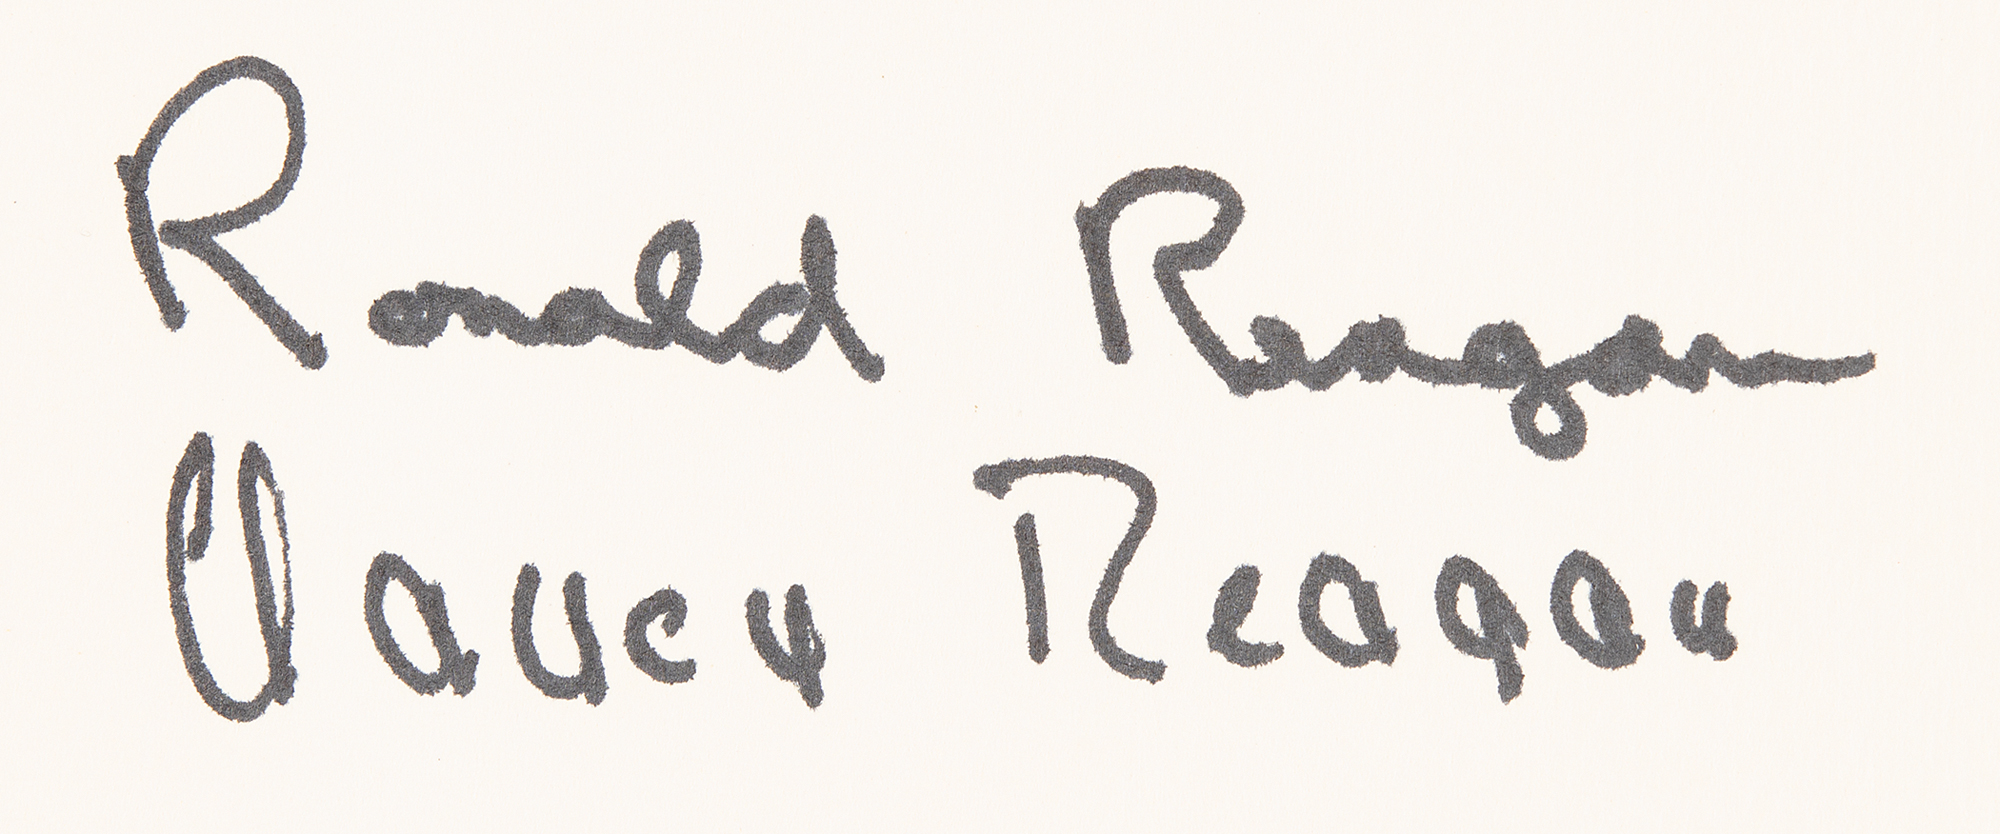 Ronald Reagan
Nancy Reagan